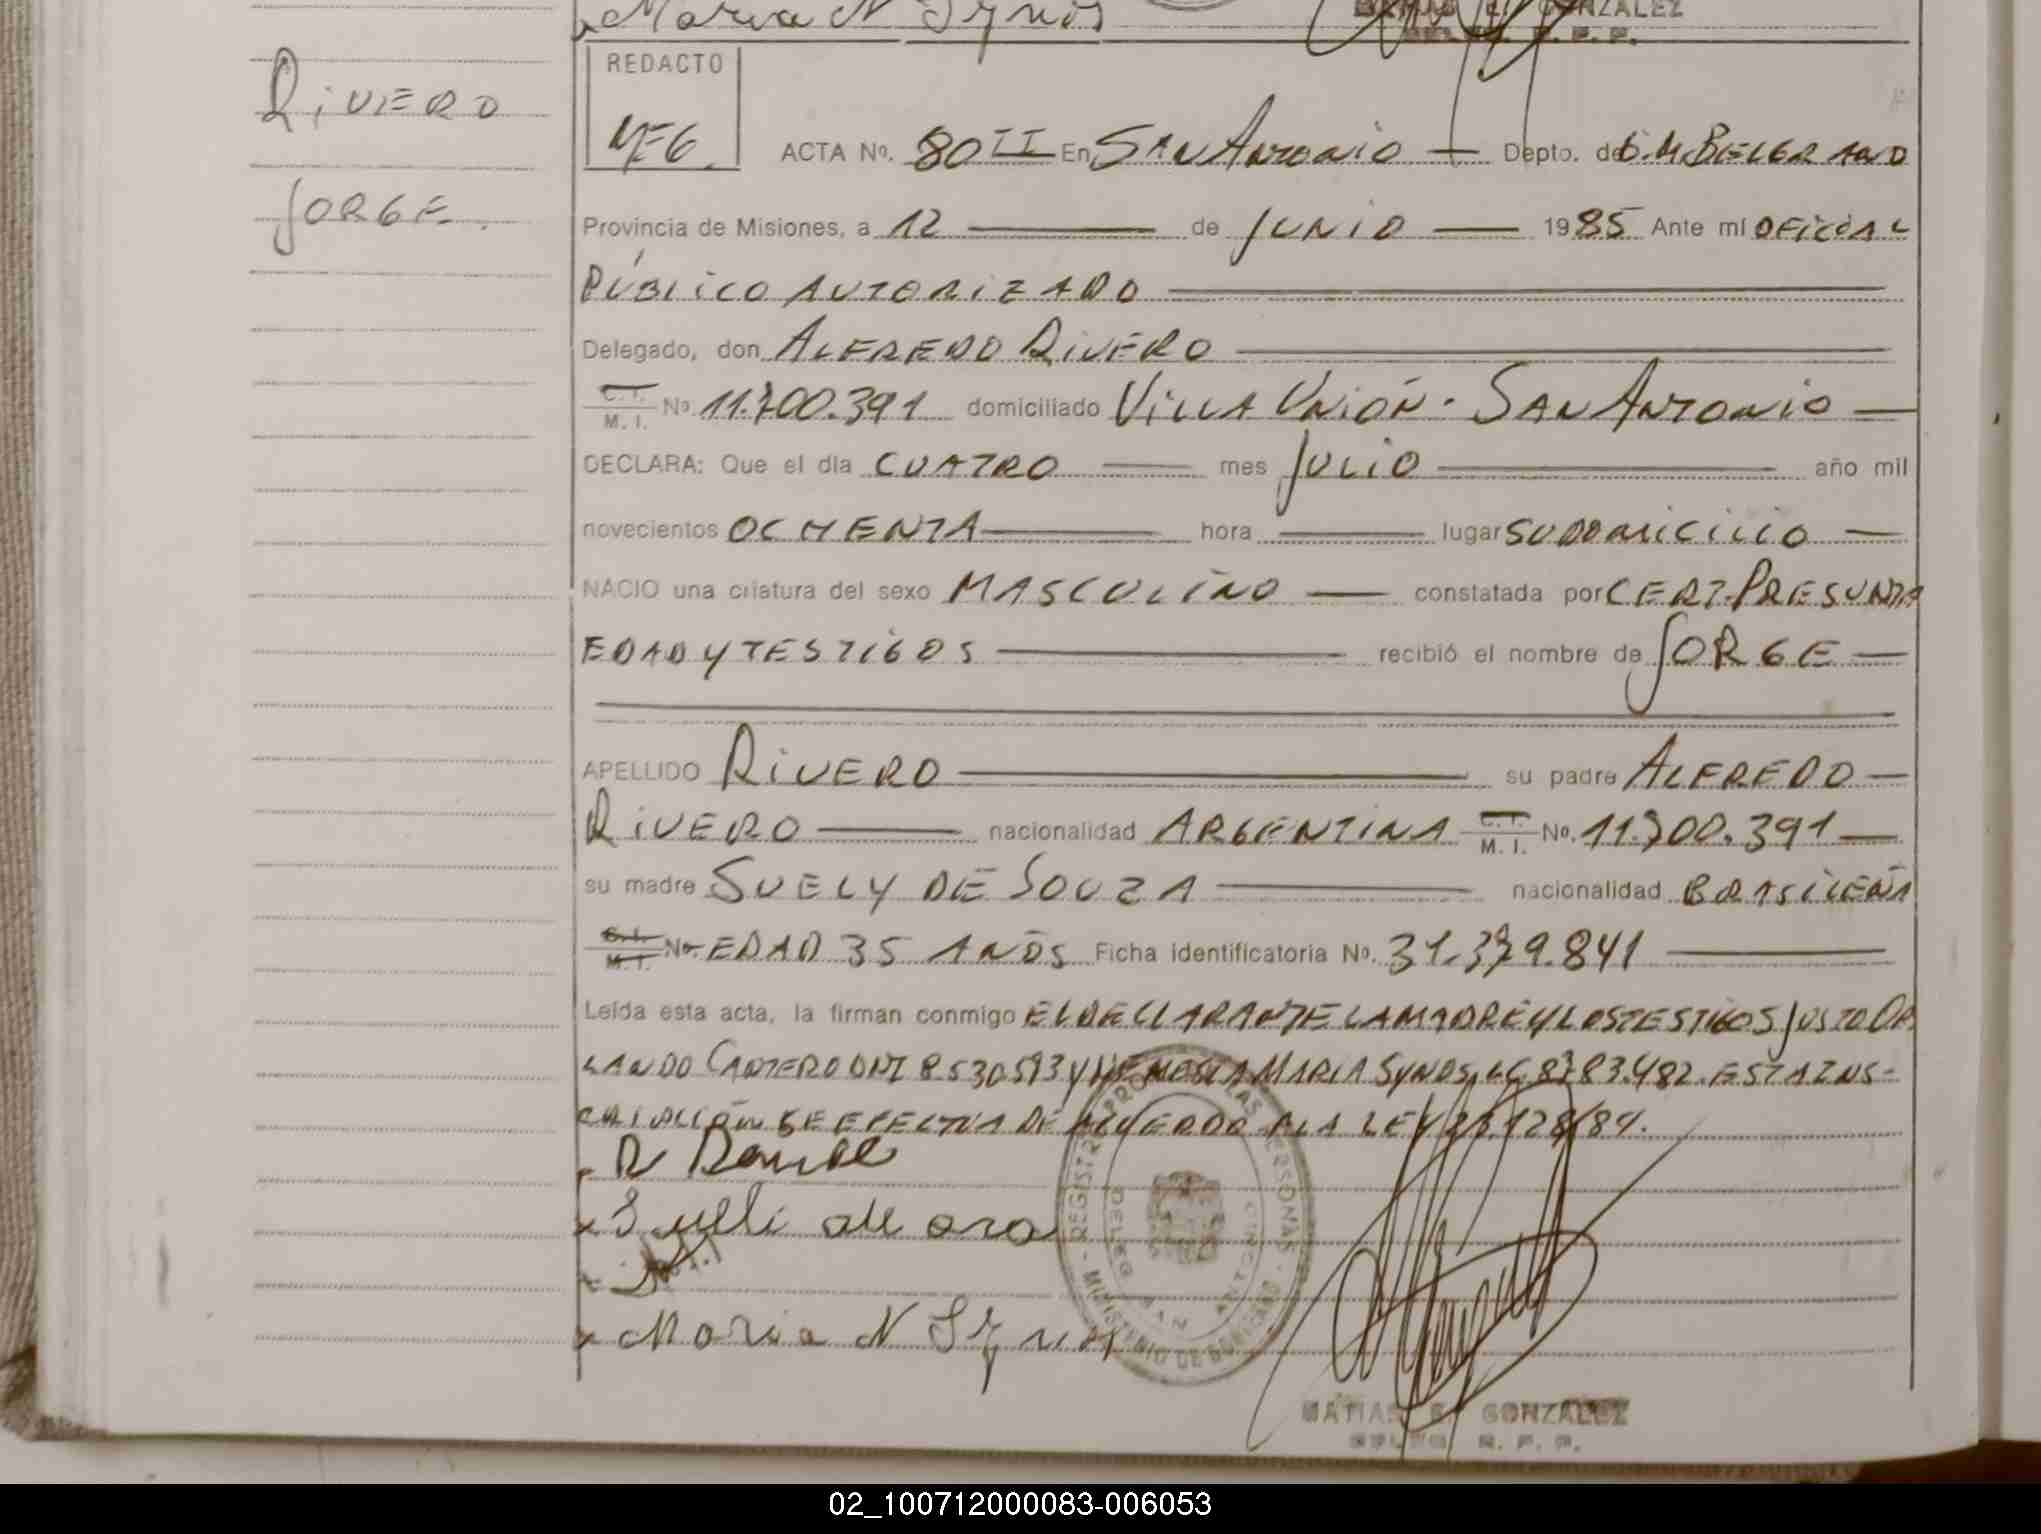 Maria N Synos
GONZALEZ
RIVERO
JORGE.
REDACTO
MEG.
ACTA Nº. 80 II En SAN ANTONIO — Depto. de G.M. BELGRANO
Provincia de Misiones, a 12 — de JUNIO — 1985 Ante mi OFICIAL
PÚBLICO AUTORIZADO —
Delegado, don ALFREDO RIVERO —
C.I.
M.I. Nº. 11.700.391 domiciliado VILLA UNIÓN - SAN ANTONIO —
DECLARA: Que el dia CUATRO — mes JULIO — año mil
novecientos OCHENTA — hora — lugar SU DOMICILIO —
NACIO una criatura del sexo MASCULINO — constatada por CERT. PRESUNTA
EDAD Y TESTIGOS — recibió el nombre de JORGE —
APELLIDO RIVERO — su padre ALFREDO —
RIVERO — nacionalidad ARGENTINA C.I. M.I. Nº. 11.700.391 —
su madre SUELY DE SOUZA — nacionalidad BRASILEÑA
C.I. M.I. Nº. EDAD 35 AÑOS Ficha identificatoria Nº. 31.379.841 —
Leída esta acta, la firman conmigo EL DECLARANTE LA MADRE Y LOS TESTIGOS JUSTO OR
LANDO CANTERO DNI 8530593 Y NEMESIA MARIA SYNOS LC 8783.482. ESTA INS-
CRIPCIÓN SE EFECTUA DE ACUERDO A LA LEY 23.128/84.
x Suelli
x Maria N Synos
REGISTRO PROV. DE LAS PERSONAS - MINISTERIO DE GOBIERNO
DELEG. SAN ANTONIO
MATIAS E. GONZALEZ
DELEG. R. P. P.
02_100712000083-006053